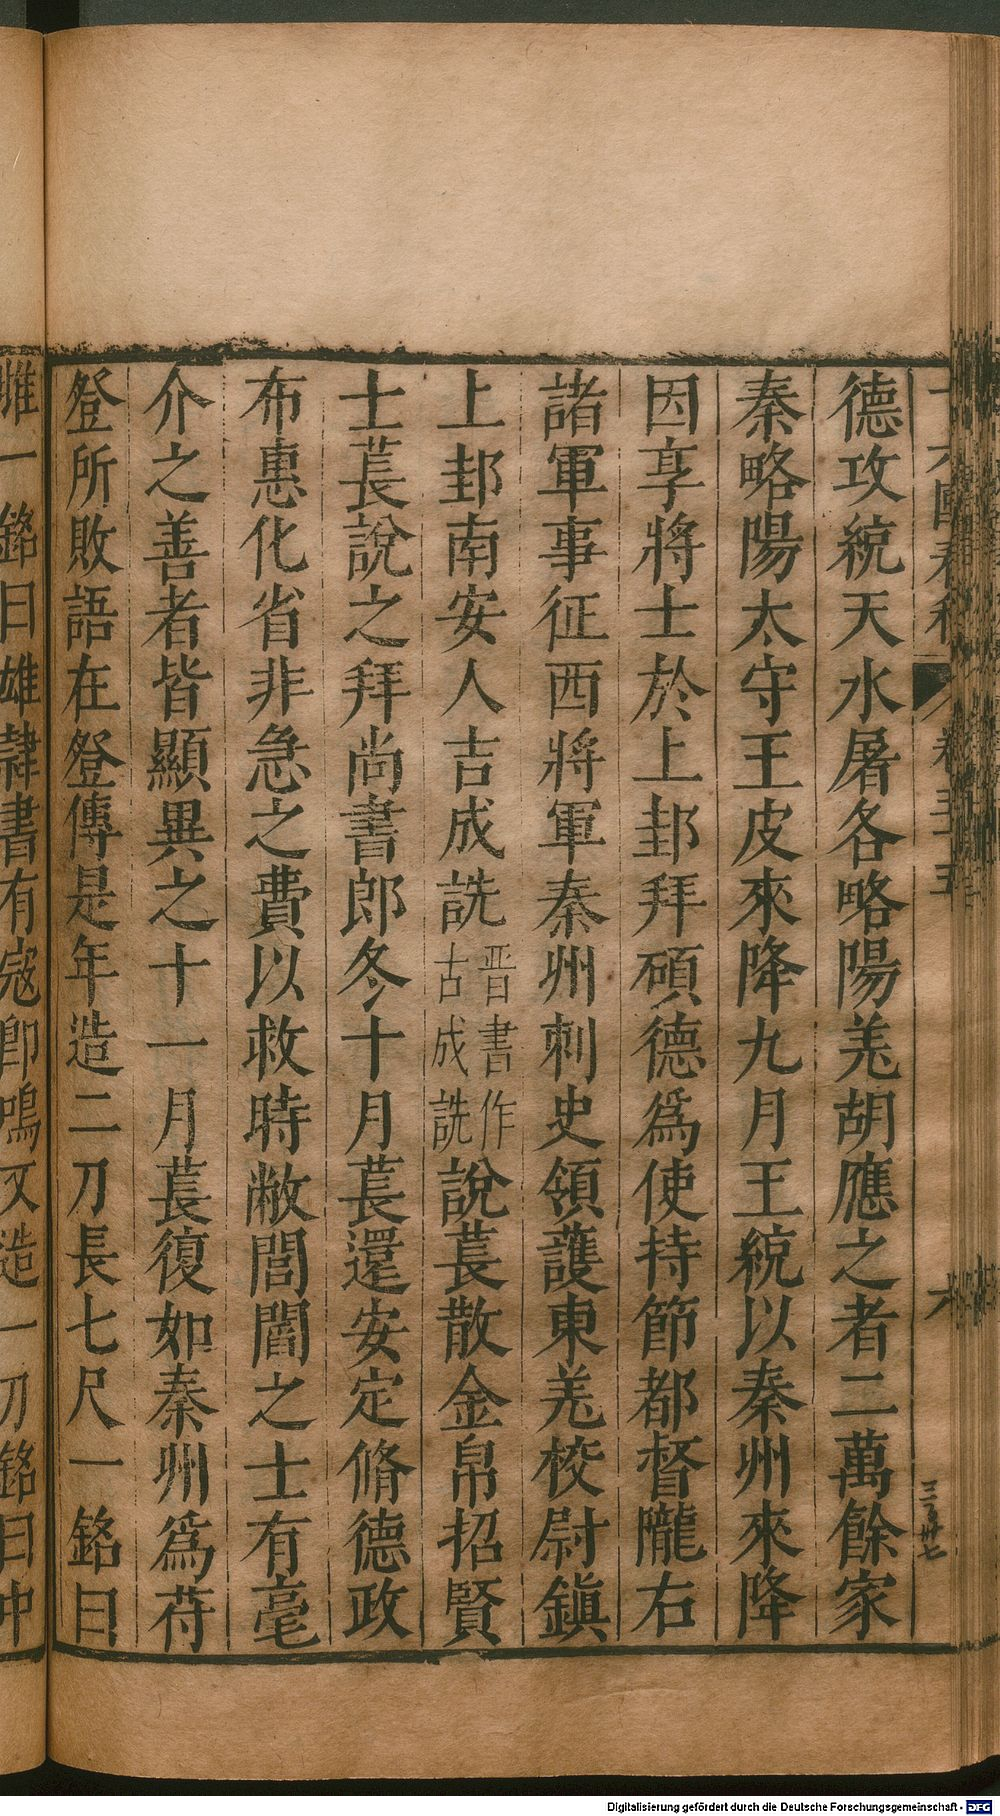 德攻統天水屠各略陽羌胡應之者二萬餘家
秦略陽太守王皮來降九月王統以秦州來降
因享將士於上邽拜碩德爲使持節都督隴右
諸軍事征西將軍秦州刺史領護東羌校尉鎮
上邽南安人古成詵晉書作古成詵說萇散金帛招賢
士萇說之拜尚書郎冬十月萇還安定脩德政
布惠化省非急之費以救時敝閭閻之士有毫
介之善者皆顯異之十一月萇復如秦州爲苻
登所敗語在登傳是年造二刀長七尺一銘曰
雌一銘曰雄隷書有寇卽鳴又造一刀銘曰中
Digitalisierung gefördert durch die Deutsche Forschungsgemeinschaft - DFG